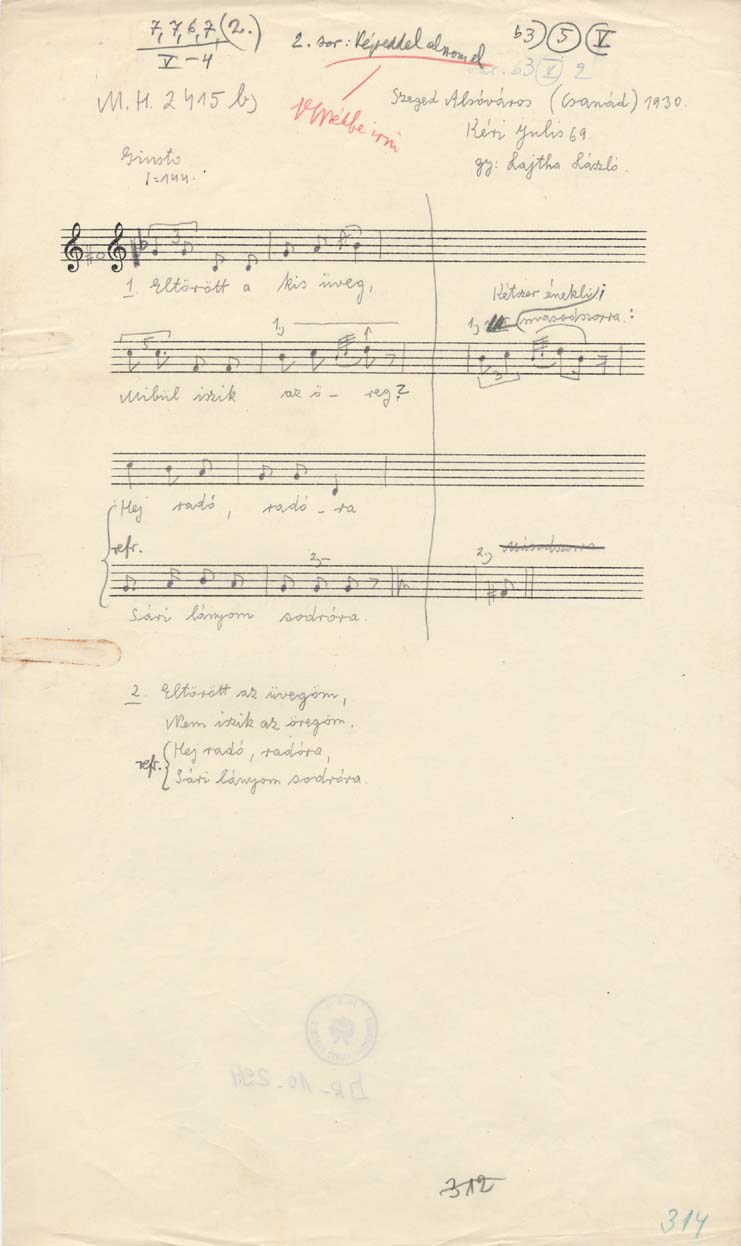 7, 7, 6, 7, (2.)
V – 4
2. sor:
b3) (5) (V)
b3 (V) 2
M. H. 2415 b)
Szeged Alsóváros (Csanád) 1930.
Kéri Julis 69.
gy: Lajtha László.
Giusto
♩=144.
3
1. Eltörött a kis üveg,
Kétszer énekli;
1,) másodszorra:
5
1,)
3
Mibül iszik az ö – reg?
Hej radó, radó – ra
refr.
2,)
2,) Másodszorra
Sári lányom sodróra.
2. Eltörött az üvegöm,
Nem iszik az öregöm.
refr. Hej radó, radóra,
Sári lányom sodróra.
312
314